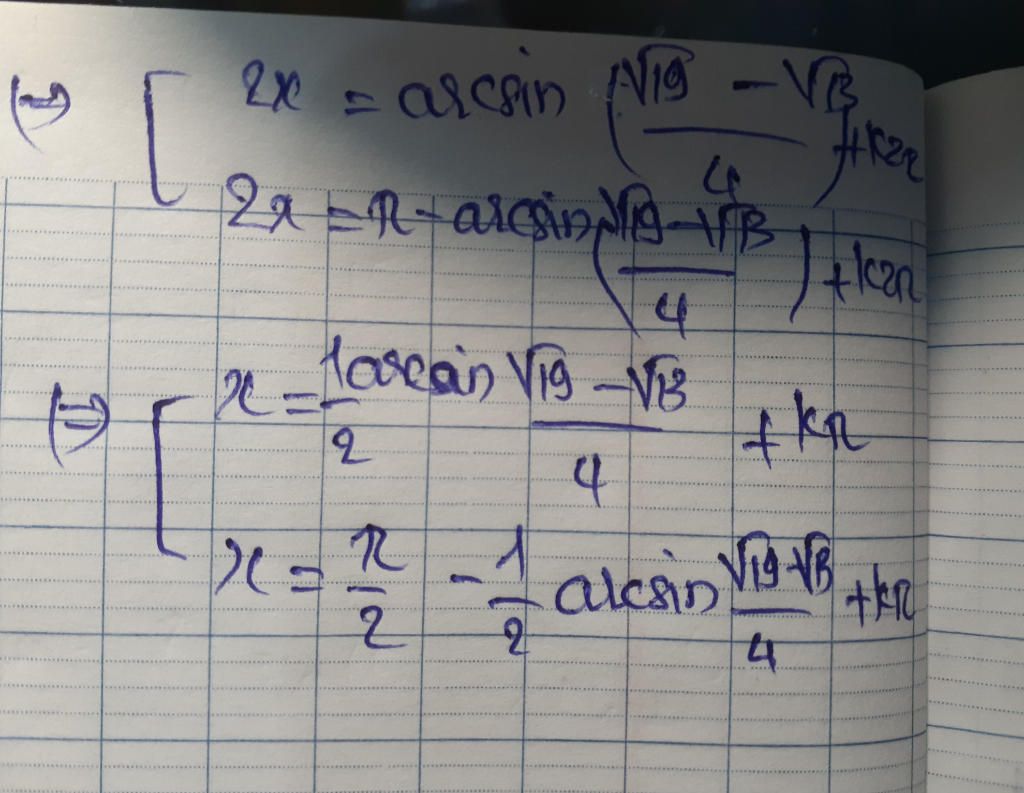 ⇔ [ 2x = arcsin ( (√19 - √3)/4 ) + k2π
2x = π - arcsin ( (√19 - √3)/4 ) + k2π
⇔ [ x = 1/2 arcsin (√19 - √3)/4 + kπ
x = π/2 - 1/2 arcsin (√19 - √3)/4 + kπ